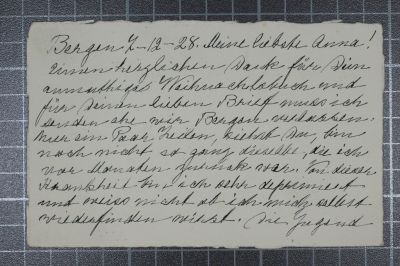 Bergen 7-12-28. Meine liebste Anna!
Einen herzlichen Dank für Dein
anmuthiges Weihnachtsbuch und
für Deinen lieben Brief muss ich
senden ehe wir Bergen verlassen.
Nur ein Paar Zeilen, liebst Du, bin
noch nicht so ganz dieselbe, die ich
vor Monaten zurück war. Von dieser
Krankheit bin ich sehr deprimiert
und weiss nicht ob ich mich selbst
wiederfinden werde. Die Jugend